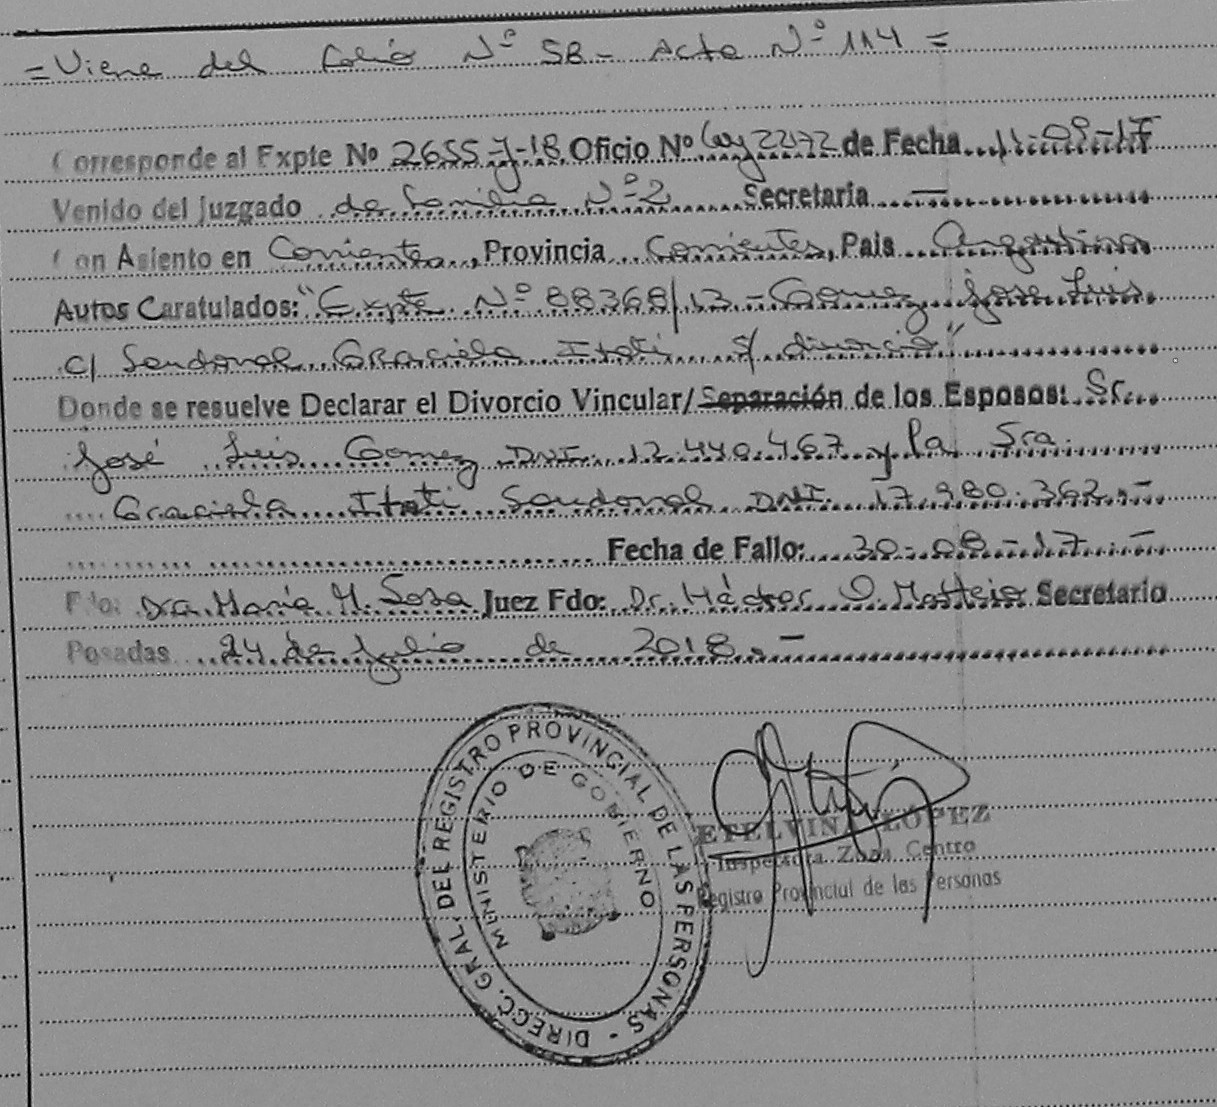 = Viene del Folio Nº 58 - Acta Nº 114 =
Corresponde al Expte Nº 2655-J-18 Oficio Nº Ley 22172 de Fecha 11-09-17
Venido del Juzgado de Familia Nº 2 Secretaria —
Con Asiento en Corrientes, Provincia Corrientes, Pais Argentina
Autos Caratulados: "Expte Nº 88368/13 - Gomez Jose Luis
c/ Sandoval Graciela Itati s/ divorcio"
Donde se resuelve Declarar el Divorcio Vincular/Separación de los Esposos: Sr.
José Luis Gomez DNI. 12.440.467 y la Sra.
Graciela Itati Sandoval DNI. 17.980.362.-
Fecha de Fallo: 30-08-17.-
Fdo: Dra. María M. Sosa Juez Fdo: Dr. Héctor O. Secretario
Posadas 24 de Julio de 2018.-
DIRECC. GRAL. DEL REGISTRO PROVINCIAL DE LAS PERSONAS -
MINISTERIO DE GOBIERNO
ETELVINA LOPEZ
Inspectora Zona Centro
Registro Provincial de las Personas